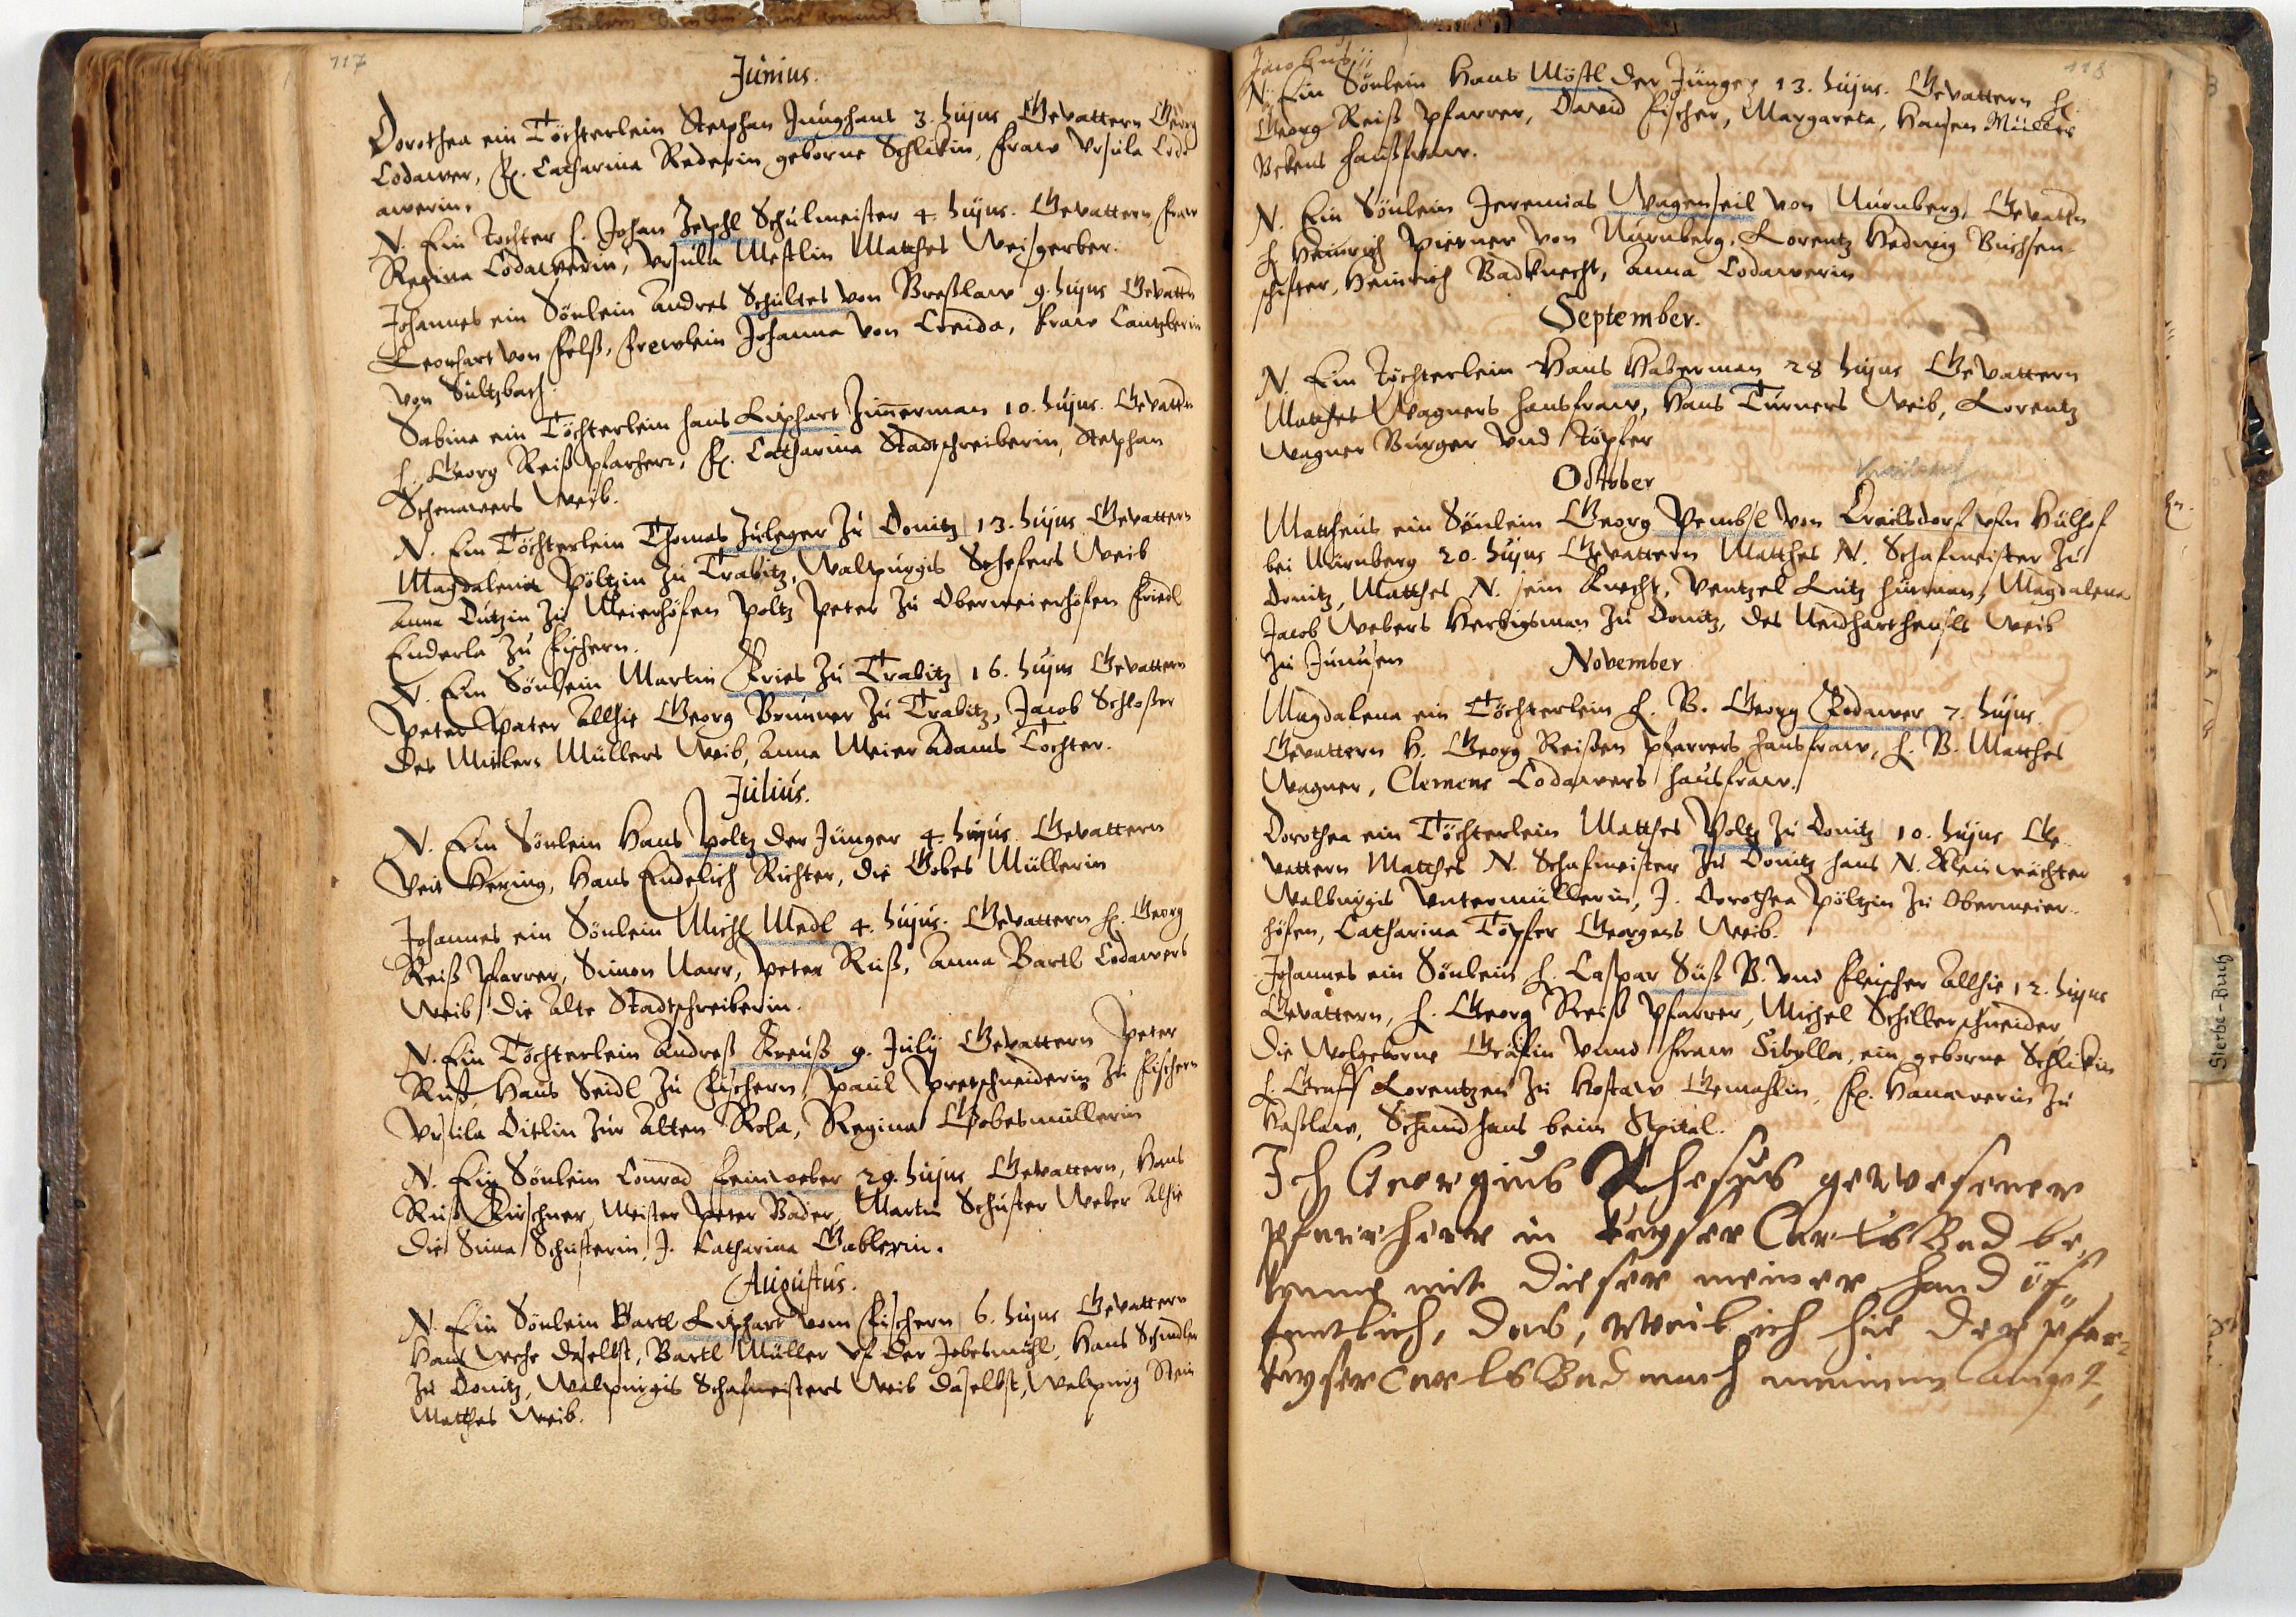 117
Junius.
Dorothea ein Töchterlein Stephan Junghans 3. hujus Gevattern Georg
Lodawer, Fr. Catharina Rederin geborne Schlikin, Fraw Ursula Lod
awerin.
N. Ein Tochter H. Johan Zephl Schulmeister 4. hujus. Gevattern Fraw
Regina Lodawerin, Ursula Mestlin Matthes Weisgerber.
Johannes ein Sönlein Andres Schultes von Breßlaw 9. hujus Gevattn
Leonhart von Felß, Frewlein Johanna von Creida, Fraw Cantzlerin
von Sultzbach.
Sabina ein Töchterlein hans Liphart Zimerman 10. hujus. Gevattn
H. Georg Reiß pfarherr, Fr. Catharina Stadtschreiberin, Stephan
Schenawers Weib.
N. Ein Töchterlein Thomas Zuleger zu Donitz 13. hujus Gevattern
Magdalena Pöltzin zu Trabitz, Walpurgis Schefers Weib
Anna Dutzin zu Meierhöfen Poltz Peter zu Obermeierhöfen Friedl
Enderla zu Fischern.
N. Ein Sönlein Martin Kries zu Trabitz 16. hujus Gevattern
Peter Pater Allhie Georg Brunner zu Trabitz, Jacob Schloßer
Des Mitlern Müllers Weib, Anna Meier Adams Tochter.
Julius.
N. Ein Sönlein Hans Poltz der Jünger 4. hujus. Gevattern
Veit Hering, Hans Endelich Richter, die Gobes Müllerin
Johannes ein Sönlein Michl Medl 4. hujus. Gevattern H. Georg
Reiß Pfarrer, Simon Narr, Peter Ruß, Anna Bartl Lodawers
Weib, die Alte Stadtschreiberin.
N. Ein Töchterlein Andreß Kreuß 9. July Gevattern Peter
Ruß, Hans Seidl zu Fischern, Paul Pretschneiderin zu Fischern
Ursula Ditlin zur Alten Rola, Regina Gobesmüllerin
N. Ein Sönlein Conrad Leinweber 29. hujus Gevattern, Hans
Ruß Kirschner, Meister Peter Bader, Martin Schuster Weber Alhie
Die Sima Schusterin, J. Catharina Gablerin.
Augustus.
N. Ein Sönlein Bartl Liphart vom Fischern 6. hujus Gevattern
Hans daselbst, Bartl Müller uf der Jobesmühl, Hans Schindler
zu Donitz, Walpurgis Schafmeisters Weib daselbst, Walpurg Stein
Matthes Weib.
118
N. Ein Sönlein Hans Möstl der Jünger 13. hujus. Gevattern H.
Georg Reiß Pfarrer, David Fischer, Margareta, Hansen Müllers
Bekens haußfraw.
N. Ein Sönlein Jeremias Wagenseil von Nürnberg, Gevattn
H. Heinrich Pierner von Nürnberg, Lorentz Hedwig Büchsen-
schifter, Heinrich Badknecht, Anna Lodawerin
September.
N. Ein Töchterlein Hans Haberman 28 hujus Gevattern
Matthes Wagners hausfraw, Hans Turners Weib, Lorentz
Wagner Burger und Töpfer
October
Mattheus ein Sönlein Georg Pembsl von Kreilsdorf ufn Hülhof
bei Nürnberg 20. hujus Gevattern Matthes N. Schafmeister zu
Donitz, Matthes N. sein Knecht, Wentzel Lutz Furman, Magdalena
Jacob Webers Herbigsman zu Donitz, des Neidharthensls Weib
zu
November
Magdalena ein Töchterlein H. B. Georg Lodawer 7. hujus.
Gevattern H. Georg Reißen Pfarrers hausfraw, H. B. Matthes
Wagner, Clemens Lodawers hausfraw.
Dorothea ein Töchterlein Matthes Poltz zu Donitz 10. hujus Ge-
vattern Matthes N. Schafmeister zu Donitz hans N. Kleinwächter
Walburgis Untermüllerin, J. Dorothea Pöltzin zu Obermeier-
höfen, Catharina Töpfer Georgens Weib.
Johannes ein Sönlein H. Caspar Süß B. und Fleischer Allhie 12. hujus
Gevattern, H. Georg Reiß Pfarrer, Michel Schiller schneider,
Die Wolgeborne Gräfin unnd Fraw Sibylla, ein geborne Schlikin
H. Graff Lorentzen zu Gemahlin, Fr. Hanawerin zu
Haßlaw, Schmid hans beim Spital.
Ich Georgius Rhesus gewesener
Pfarrherr in Kayser CarlsBad be,
kenne mit dieser meiner hand öf,
fentlich, das, weil ich hie der Pfar-
Kayser CarlsBad nach meinem
Sterbe-Buch